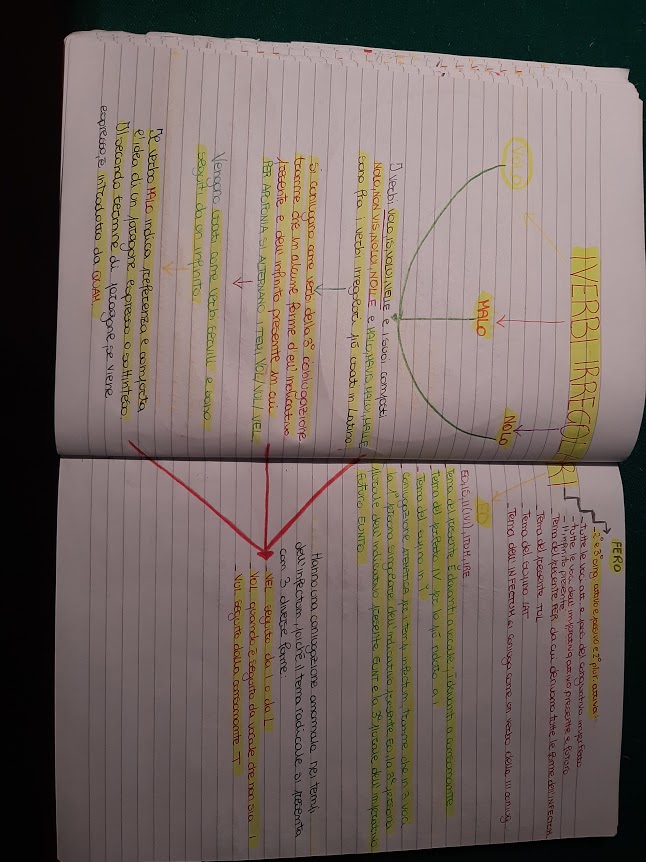 I VERBI IRREGOLARI
MALO
I verbi VOLO, IS, VOLUI, VELLE e i suoi composti
NOLO, NON VIS, NOLUI, NOLLE e MALO, MAVIS, MALUI, MALLE
sono fra i verbi irregolari più usati in Latino
Si coniugano come verbi della 3° coniugazione
tranne che in alcune forme dell'indicativo
presente e dell'infinito presente in cui
PER APOFONIA SI ALTERNANO I TEMI VOL/VUL/VEL
Vengono usati come verbi servili e sono
seguiti da un infinito
Il verbo MALO indica preferenza e comporta
l'idea di un paragone espresso o sottinteso
Il secondo termine di paragone, se viene
espresso, è introdotto da QUAM
FERO
- 2° e 3° sing. attivo e passivo e 2° plur. attiva
- tutte le voci att. e pass. del congiuntivo imperfetto
- tutte le voci dell'imperativo attivo presente e futuro
- l'infinito presente
- Tema del presente FER da cui derivano tutte le forme dell'INFECTUM
- Tema del perfetto TUL
- Tema del supino LAT
- Tema dell'INFECTUM si coniuga come un verbo della III coniug.
EO
EO, IS, II (IVI), ITUM, IRE
- Tema del presente E davanti a vocale, I davanti a consonante
- Tema del perfetto IV per lo più ridotto a I
- Tema del supino in IT
coniugazione ATEMATICA per i tempi infectum, tranne che in 3 voci
la 1° persona singolare dell'indicativo presente EO, la 3° persona
plurale dell'indicativo presente EUNT e la 3° plurale dell'imperativo
futuro EUNTO
Hanno una coniugazione anomala nei tempi
dell'infectum, poiché il tema radicale si presenta
con 3 diverse forme:
- VEL seguito da I o da L
- VOL quando è seguito da vocale che non sia I
- VUL seguito dalla consonante T